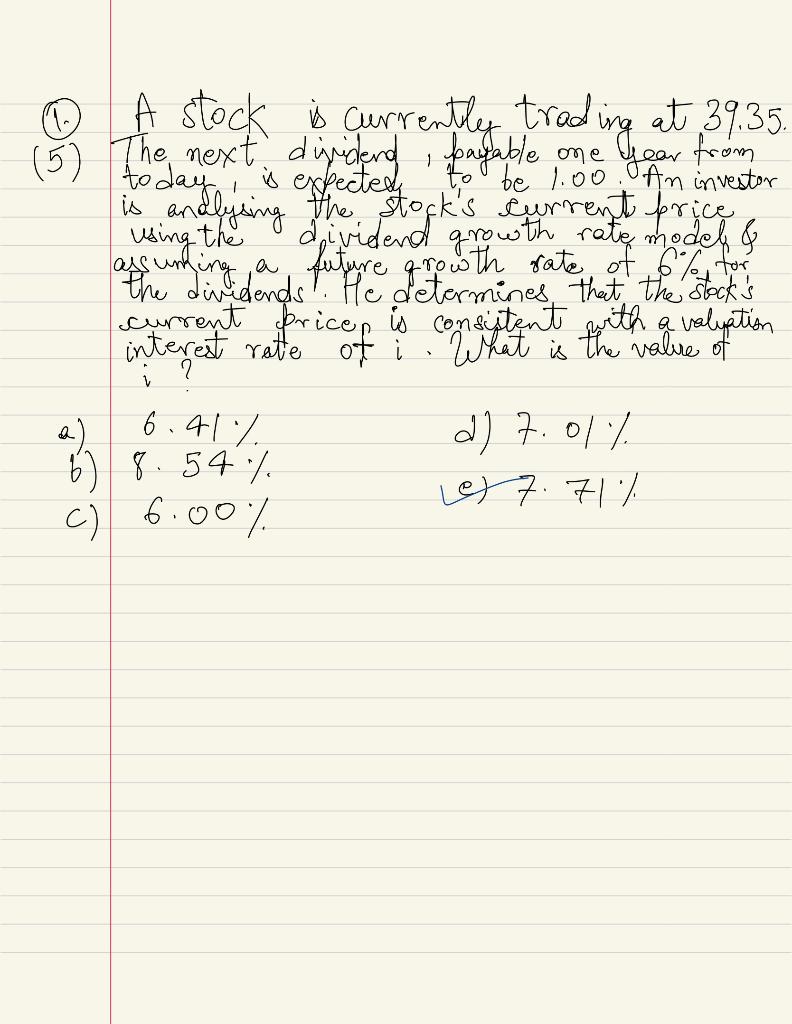 1. A stock is currently trading at 39.35.
(5) The next dividend, payable one year from
today, is expected to be 1.00. An investor
is analysing the stock's current price
using the dividend growth rate model &
assuming a future growth rate of 6% for
the dividends. He determines that the stock's
current price, is consistent with a valuation
interest rate of i. What is the value of
i ?
a) 6.41% d) 7.01%
b) 8.54%
e) 7.71%
c) 6.00%